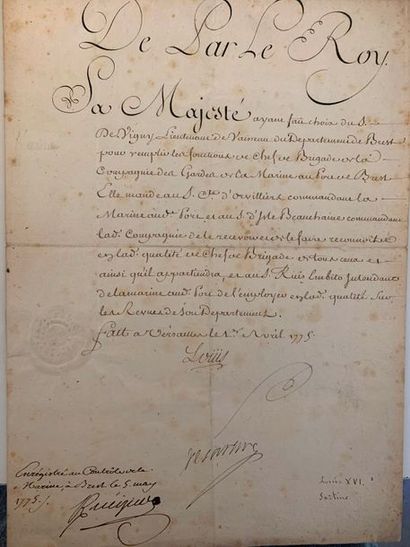 De Par Le Roy.
Sa Majesté ayant fait choix du S.
De Vigny Lieutenant de Vaisseau du Departement de Brest
pour remplir les fonctions de Chef de Brigade de la
Compagnie des Gardes de la Marine au Port de Brest
Elle mande au S. Cte d'Orvilliers commandant la
Marine aud. Port et au S. d'Isle Beauchaine commandant
lad. Compagnie de le recevoir et le faire reconnoitre
en lad. qualité de Chef de Brigade de tous ceux et
ainsi qu'il appartiendra, et au S. Ruis Embito Intendant
de la marine aud. Port de l'employer en lad. qualité sur
les Revues de son Departement.
Fait a Versailles le 1er Avril 1775.
Louis
De Sartine
Enregistré au Contrôle de la
Marine, à Brest le 5 may
1775.
Louis XVI
Sartine